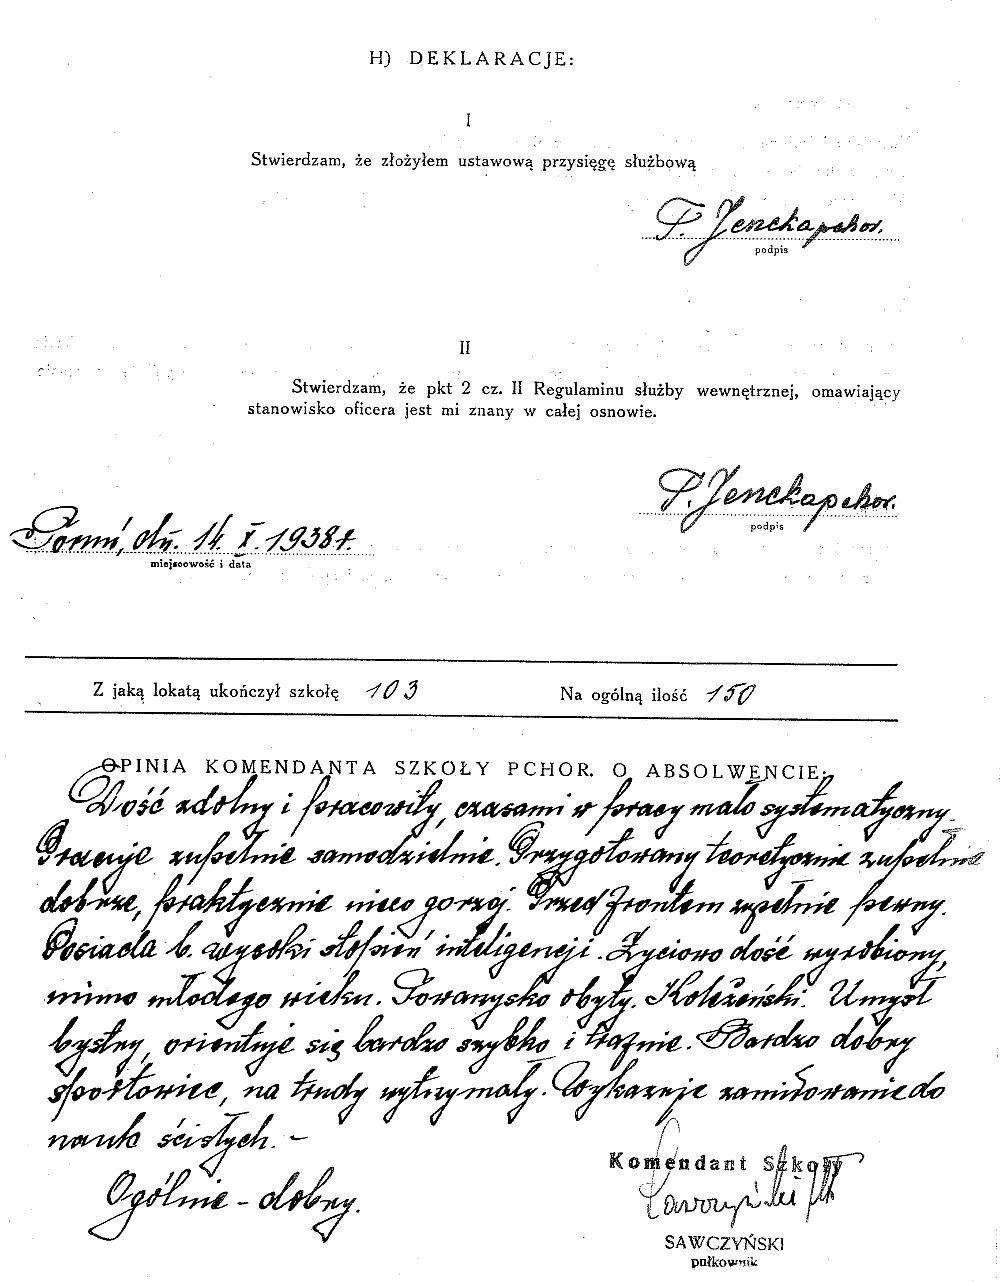 H) DEKLARACJE:
I
Stwierdzam, że złożyłem ustawową przysięgę służbową
T. Jencka pchor.
podpis
II
Stwierdzam, że pkt 2 cz. II Regulaminu służby wewnętrznej, omawiający
stanowisko oficera jest mi znany w całej osnowie.
T. Jencka pchor.
podpis
Toruń, dn. 14. X. 1938 r.
miejscowość i data
Z jaką lokatą ukończył szkołę 103 Na ogólną ilość 150
OPINIA KOMENDANTA SZKOŁY PCHOR. O ABSOLWENCIE:
Dość zdolny i pracowity, czasami w pracy mało systematyczny.
Pracuje zupełnie samodzielnie. Przygotowany teoretycznie zupełnie
dobrze, praktycznie nieco gorzej. Przed frontem zupełnie pewny.
Posiada b. wysoki stopień inteligencji. Życiowo dość wyrobiony,
mimo młodego wieku. Towarzysko obyty. Koleżeński. Umysł
bystry, orientuje się bardzo szybko i trafnie. Bardzo dobry
sportowiec, na trudy wytrzymały. Wykazuje zamiłowanie do
nauk ścisłych. –
Ogólnie – dobry.
Komendant Szkoły
Sawczyński płk
SAWCZYŃSKI
pułkownik